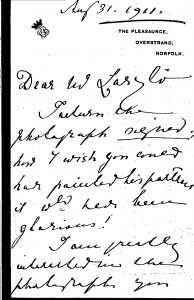 Aug 31. 1911.
THE PLEASAUNCE,
OVERSTRAND,
NORFOLK.
Dear
I return the
photograph signed;
how I wish you could
have painted his partners
it wld have been
glorious!
I am greatly
interested in the
photographs you